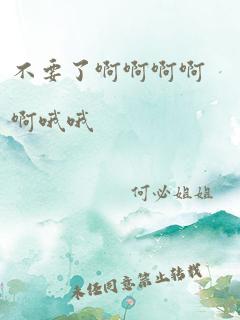 不要了啊啊啊啊
啊哦哦
何必姐姐
未经同意禁止转载